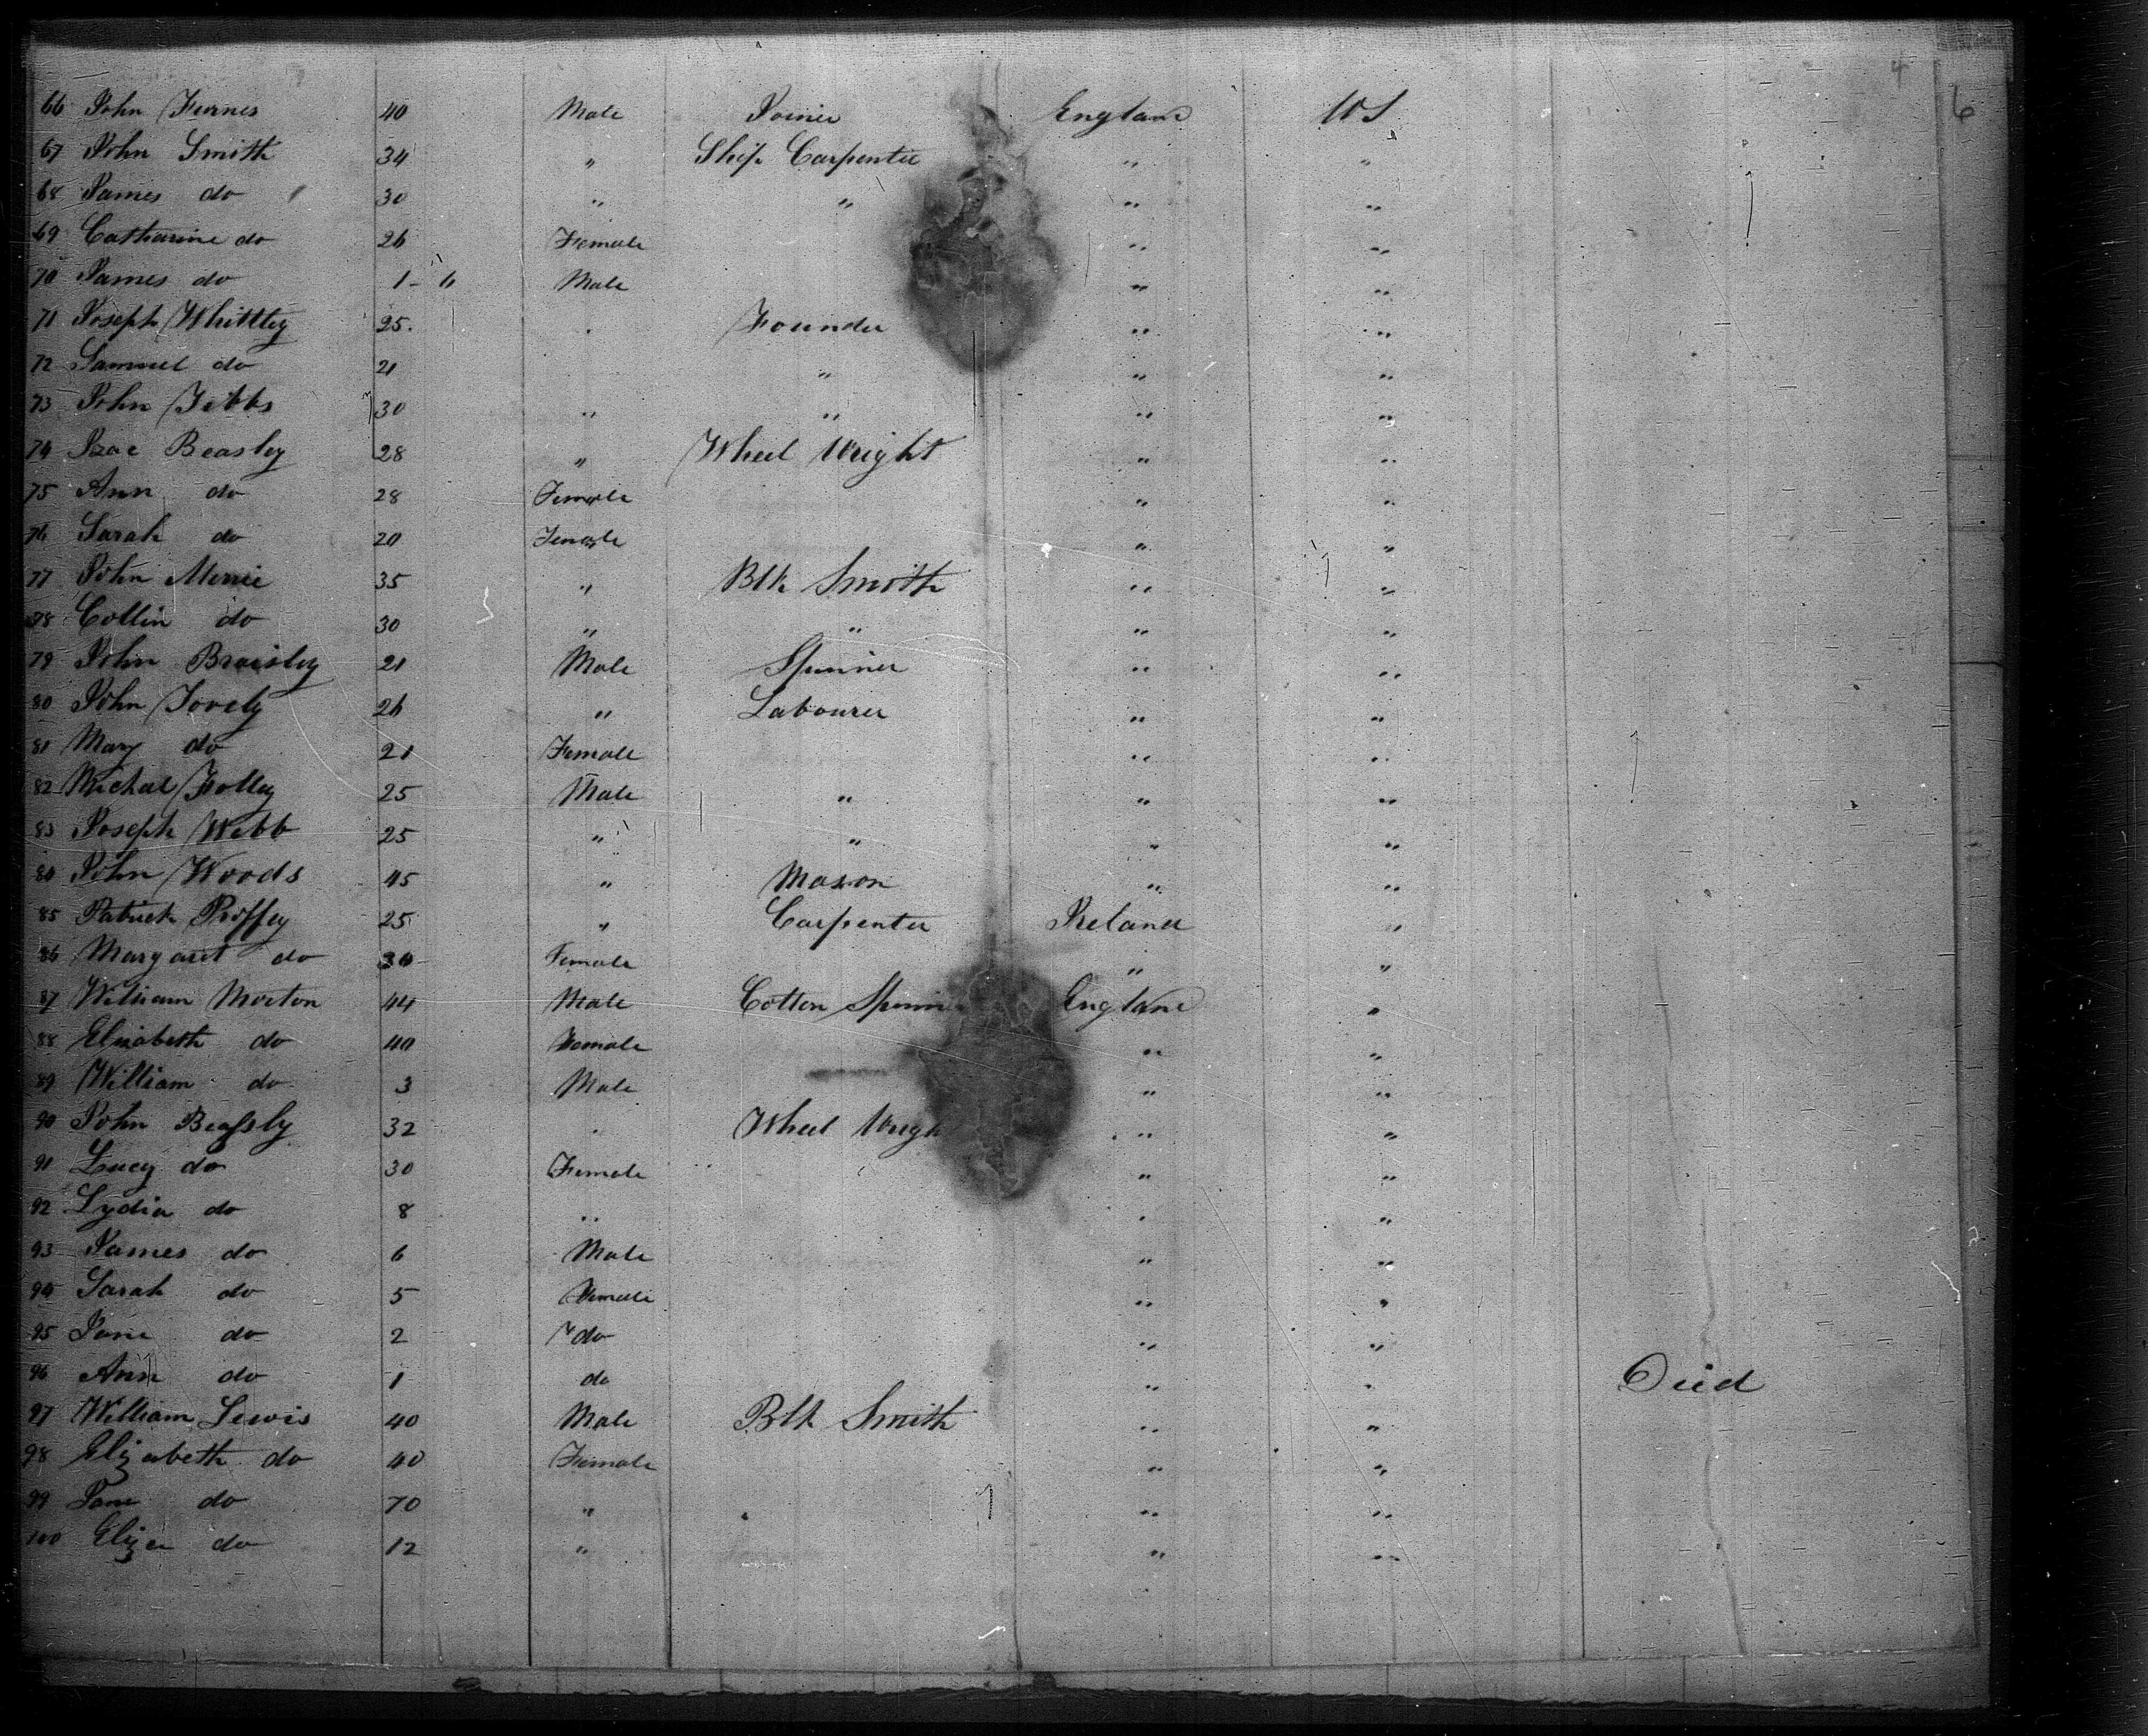 4
6
66 John Furnes 40 Male Joiner England US
67 John Smith 34 " Ship Carpenter " "
68 James do 30 " " " "
69 Catharine do 26 Female " "
70 James do 1-6 Male " "
71 Joseph Whittley 25 " Founder " "
72 Samuel do 21 " " "
73 John Tibbs 30 " " " "
74 Isac Beasley 28 " Wheel Wright " "
75 Ann do 28 Female " "
76 Sarah do 20 Female " "
77 John Merrie 35 " Blk Smith " "
78 Collin do 30 " " " "
79 John Braisley 21 Male Spinner " "
80 John Jovely 26 " Labourer " "
81 Mary do 21 Female " "
82 Michal Folley 25 Male " " "
83 Joseph Webb 25 " " " "
84 John Woods 45 " Mason " "
85 Patrick Proffey 25 " Carpenter Ireland "
86 Margaret do 30 Female " "
87 William Morton 44 Male Cotton Spinner England "
88 Elizabeth do 40 Female " "
89 William do 3 Male " "
90 John Beassly 32 " Wheel Wright " "
91 Lucy do 30 Female " "
92 Lydia do 8 " " "
93 James do 6 Male " "
94 Sarah do 5 Female " "
95 Jane do 2 do " "
96 Ann do 1 do " " Died
97 William Lewis 40 Male Blk Smith " "
98 Elizabeth do 40 Female " "
99 Jane do 70 " " "
100 Eliza do 12 " " "